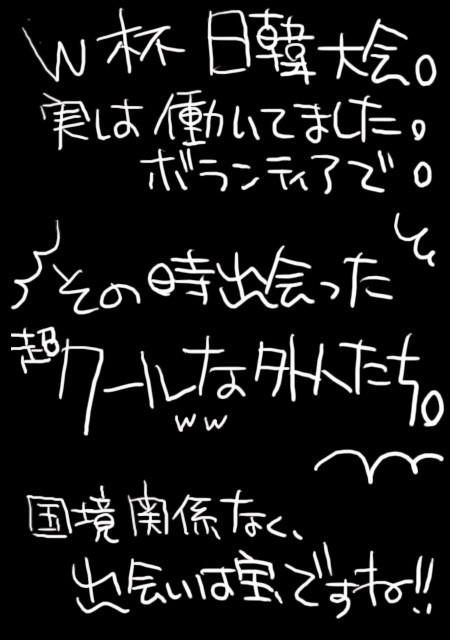 W杯 日韓大会。
実は働いてました。
ボランティアで。
その時出会った
超クールな外人たち。
ww
国境関係なく、
出会いは宝ですね!!